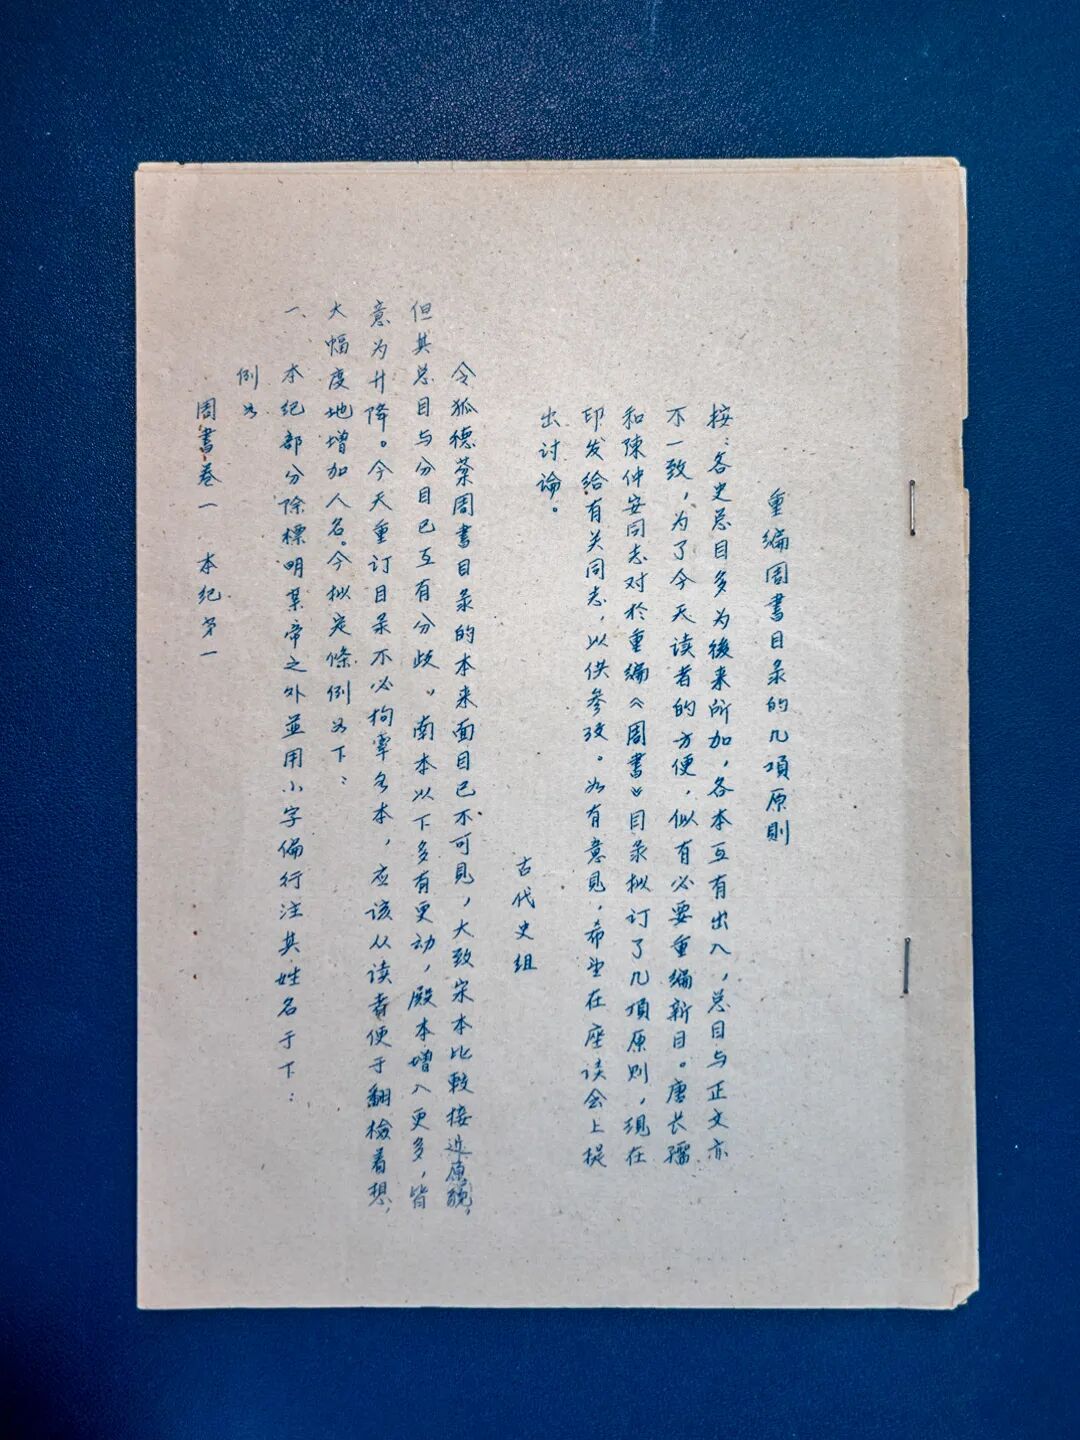 重編周書目录的几項原則
按：各史总目多为後来所加，各本互有出入，总目与正文亦
不一致，为了今天读者的方便，似有必要重编新目。唐长孺
和陳仲安同志对於重编《周書》目录拟订了几項原則，现在
印发给有关同志，以供参攷。如有意見，希望在座谈会上提
出讨论。
古代史组
令狐德棻周書目录的本来面目已不可見，大致宋本比較接近原貌，
但其总目与分目已互有分歧。南本以下多有更动，殿本增入更多，皆
意为升降。今天重订目录不必拘牽各本，应该从读者便于翻檢着想，
大幅度地增加人名。今拟定條例如下：
一、本纪部分除標明某帝之外並用小字偏行注其姓名于下：
例如
周書卷一　本纪第一